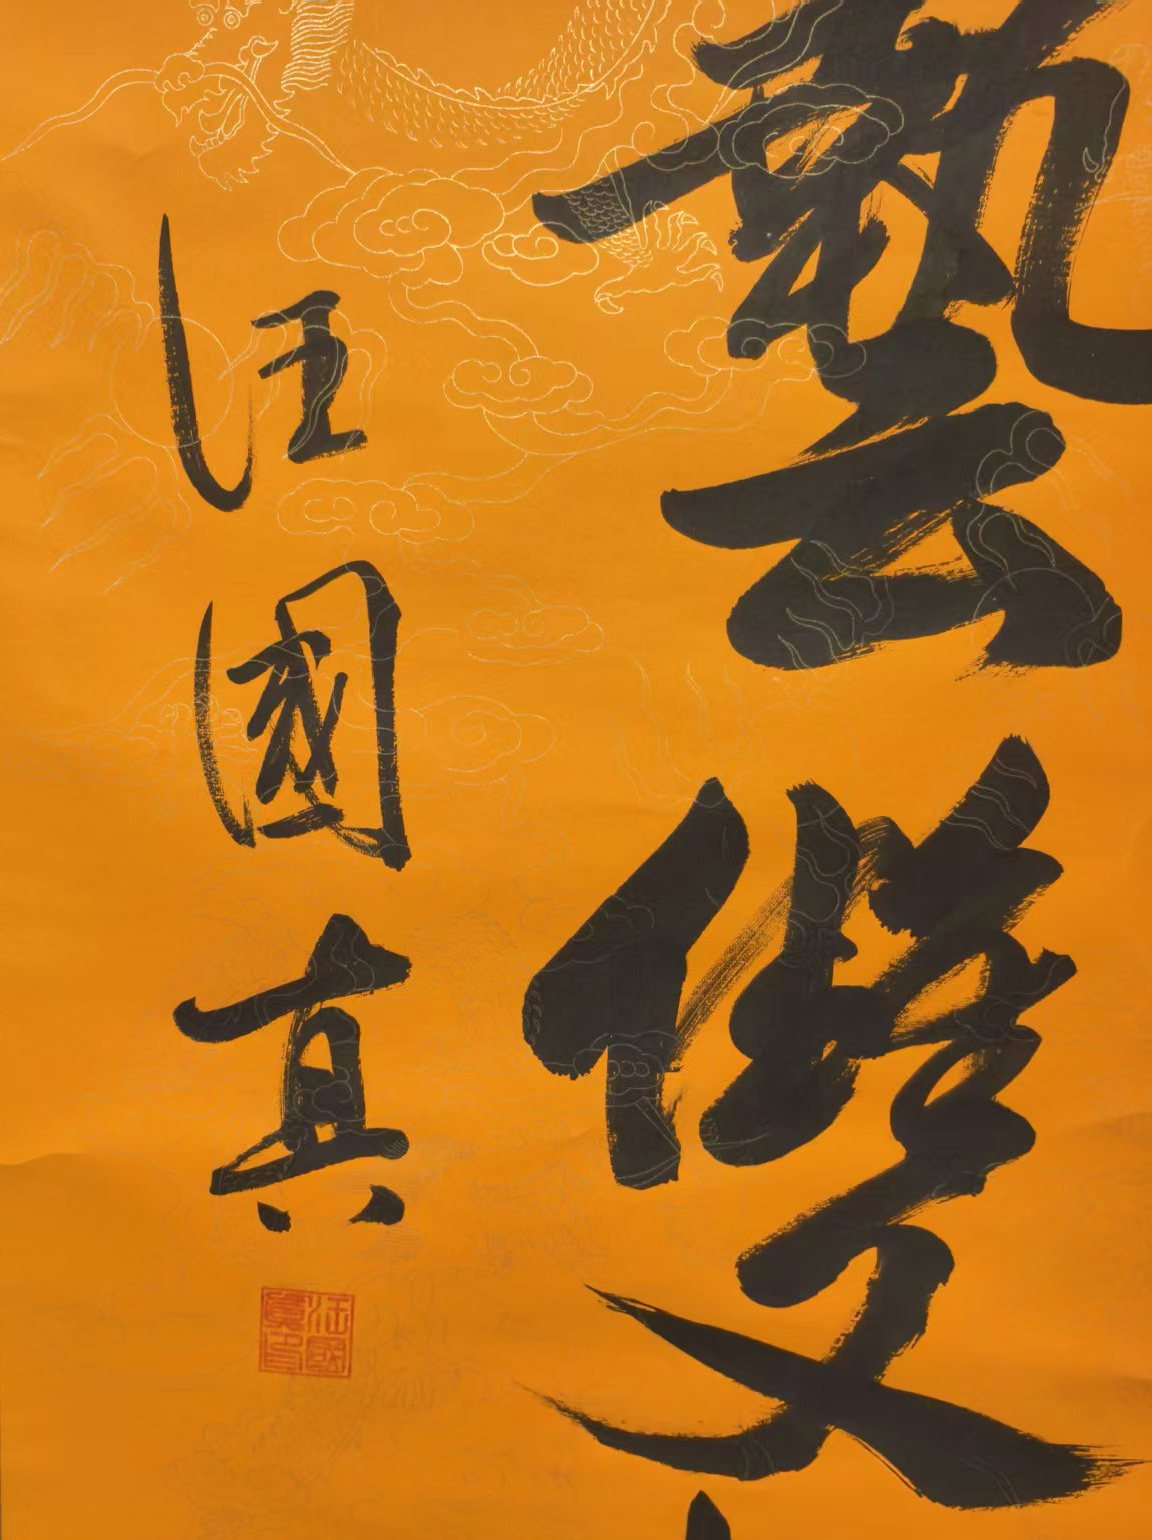 藝雙
汪國真
汪國真印